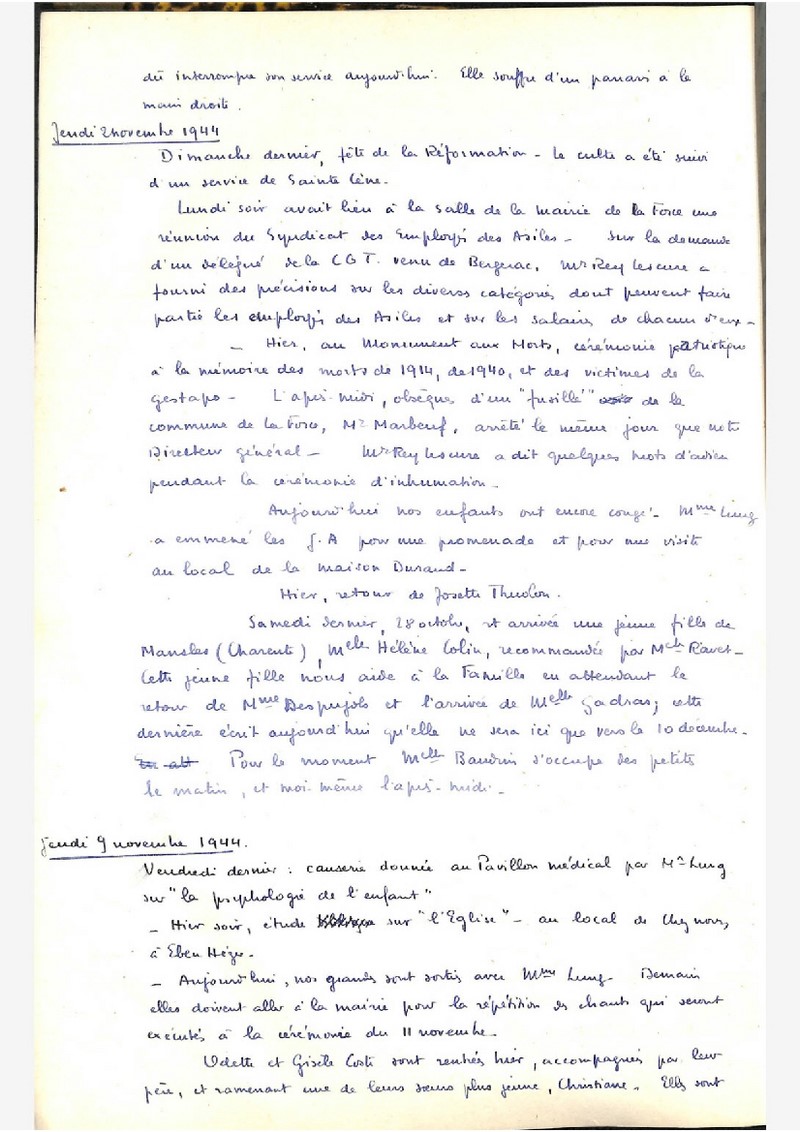 dû interrompre son service aujourd'hui. Elle souffre d'un panari à la
main droite.
Jeudi 2 novembre 1944
Dimanche dernier, fête de la Réformation - le culte a été suivi
d'un service de Sainte Cène.
Lundi soir avait lieu à la salle de la mairie de la Force une
réunion du Syndicat des Employés des Asiles - Sur la demande
d'un délégué de la CGT. venu de Bergerac, Mr Rey Lescure a
fourni des précisions sur les diverses catégories dont peuvent faire
partie les employés des Asiles et sur les salaires de chacun d'eux -
- Hier, au Monument aux Morts, cérémonie patriotique
à la mémoire des morts de 1914, de 1940, et des victimes de la
gestapo - L'après-midi, obsèques d'un "fusillé" de la
commune de la Force, Mr Marbeuf, arrêté le même jour que notre
Directeur général - Mr Rey Lescure a dit quelques mots d'adieu
pendant la cérémonie d'inhumation -
Aujourd'hui nos enfants ont encore congé - Mme Lung
a emmené les J.A pour une promenade et pour une visite
au local de la maison Durand -
Hier, retour de Josette
Samedi dernier, 28 octobre, est arrivée une jeune fille de
Mansles (Charente), Melle Hélène Colin, recommandée par Melle Ravet -
Cette jeune fille nous aide à la Famille en attendant le
retour de Mme Despujols et l'arrivée de Melle Gadras; cette
dernière écrit aujourd'hui qu'elle ne sera ici que vers le 10 décembre -
Pour le moment Melle Baudrin s'occupe des petits
le matin, et moi-même l'après-midi -
Jeudi 9 novembre 1944.
Vendredi dernier : causerie donnée au Pavillon médical par Mr Lung
sur "la psychologie de l'enfant"
- Hier soir, étude sur "l'Eglise" - au local de Chez nous,
à Eben Hézer -
- Aujourd'hui, nos grandes sont sorties avec Mme Lung - Demain
elles doivent aller à la mairie pour la répétition des chants qui seront
exécutés à la cérémonie du 11 novembre -
Odette et Gisèle Costi sont rentrées hier, accompagnées par leur
père, et ramenant une de leurs sœurs plus jeune, Christiane. Elles sont